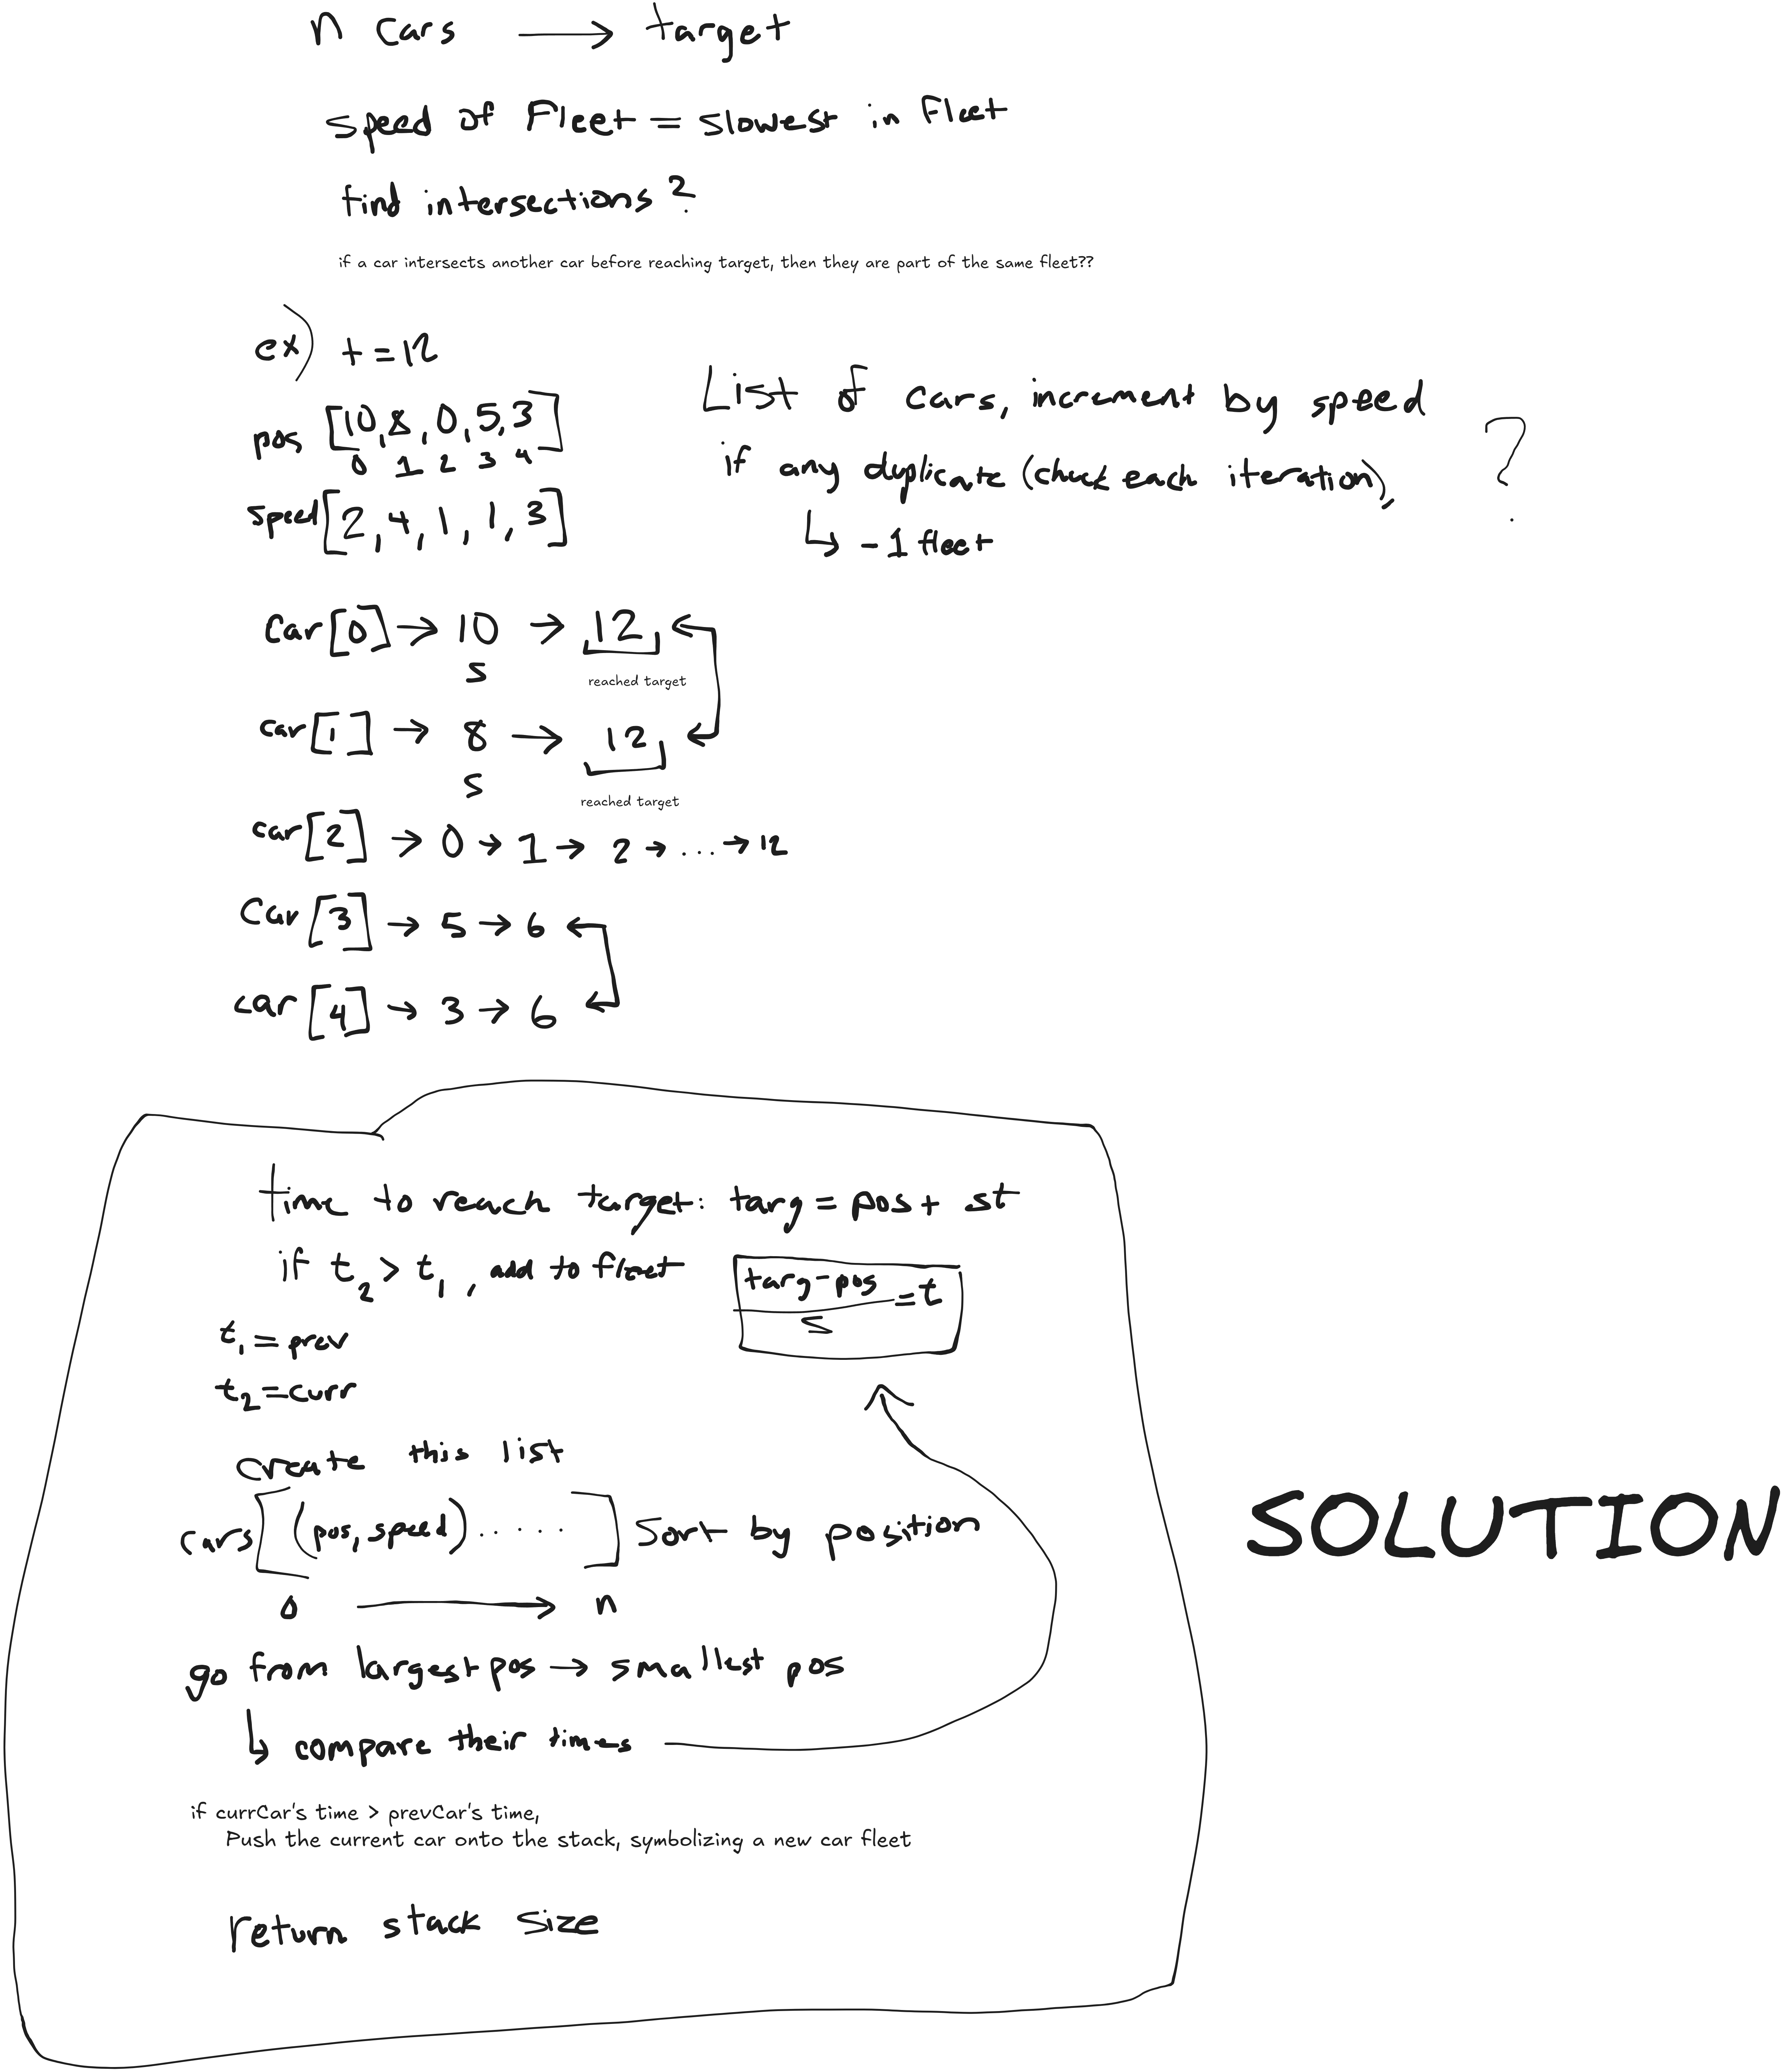 n cars → target
speed of Fleet = slowest in Fleet
find intersections?
if a car intersects another car before reaching target, then they are part of the same fleet??
ex) t = 12
pos [10, 8, 0, 5, 3]
0 1 2 3 4
speed [2, 4, 1, 1, 3]
List of cars, increment by speed
if any duplicate (check each iteration),
↳ -1 fleet
?
car[0] → 10 → 12
s
reached target
car[1] → 8 → 12
s
reached target
car[2] → 0 → 1 → 2 → ... → 12
Car[3] → 5 → 6
car[4] → 3 → 6
time to reach target: targ = pos + st
if t2 > t1, add to fleet
targ - pos / s = t
t1 = prev
t2 = curr
create this list
cars [(pos, speed) ..... ] sort by position
0 → n
go from largest pos → smallest pos
↳ compare their times
if currCar's time > prevCar's time,
Push the current car onto the stack, symbolizing a new car fleet
return stack size
SOLUTION